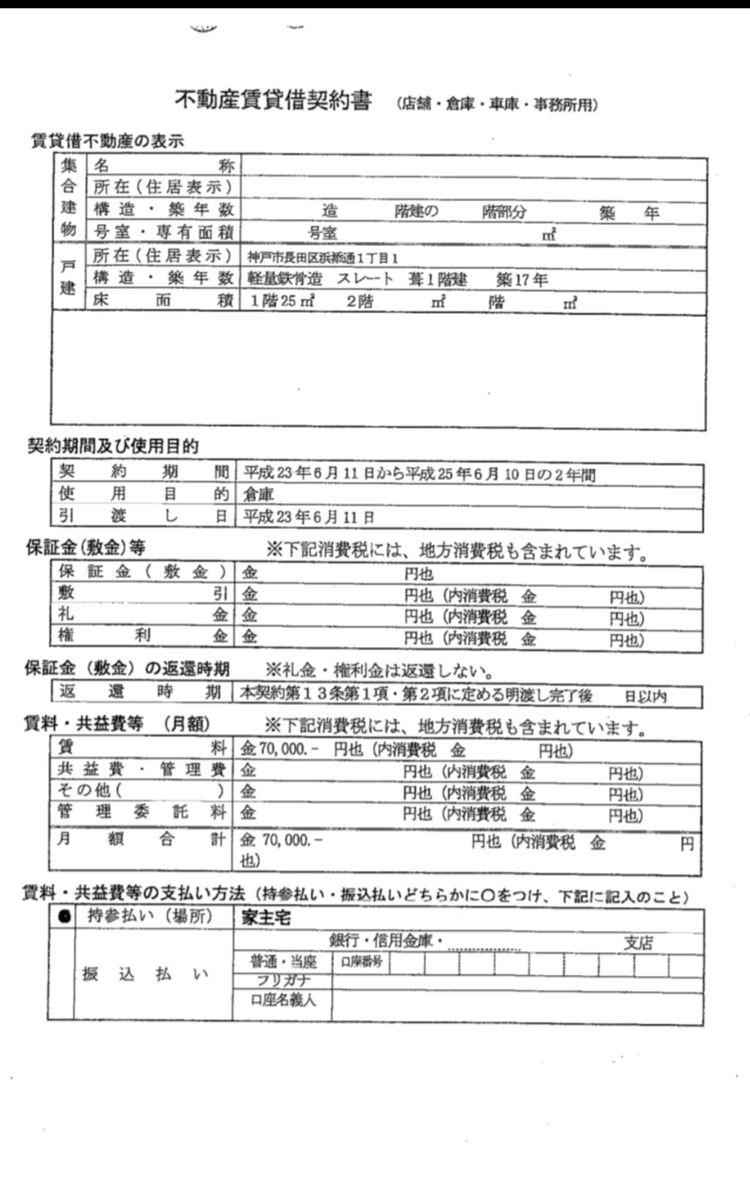 不動産賃貸借契約書 (店舗・倉庫・車庫・事務所用)
賃貸借不動産の表示
集合建物
名称
所在(住居表示)
構造・築年数 造 階建の 階部分 築 年
号室・専有面積 号室 ㎡
戸建
所在(住居表示) 神戸市長田区浜添通1丁目1
構造・築年数 軽量鉄骨造 スレート 葺1階建 築17年
床面積 1階25㎡ 2階 ㎡ 階 ㎡
契約期間及び使用目的
契約期間 平成23年6月11日から平成25年6月10日の2年間
使用目的 倉庫
引渡し日 平成23年6月11日
保証金(敷金)等 ※下記消費税には、地方消費税も含まれています。
保証金(敷金) 金 円也
敷引 金 円也(内消費税 金 円也)
礼金 金 円也(内消費税 金 円也)
権利金 金 円也(内消費税 金 円也)
保証金(敷金)の返還時期 ※礼金・権利金は返還しない。
返還時期 本契約第13条第1項・第2項に定める明渡し完了後 日以内
賃料・共益費等 (月額) ※下記消費税には、地方消費税も含まれています。
賃料 金70,000.- 円也(内消費税 金 円也)
共益費・管理費 金 円也(内消費税 金 円也)
その他( ) 金 円也(内消費税 金 円也)
管理委託料 金 円也(内消費税 金 円也)
月額合計 金 70,000.- 円也(内消費税 金 円
也)
賃料・共益費等の支払い方法(持参払い・振込払いどちらかに○をつけ、下記に記入のこと)
● 持参払い(場所) 家主宅
振込払い
銀行・信用金庫・ 支店
普通・当座 口座番号
フリガナ
口座名義人